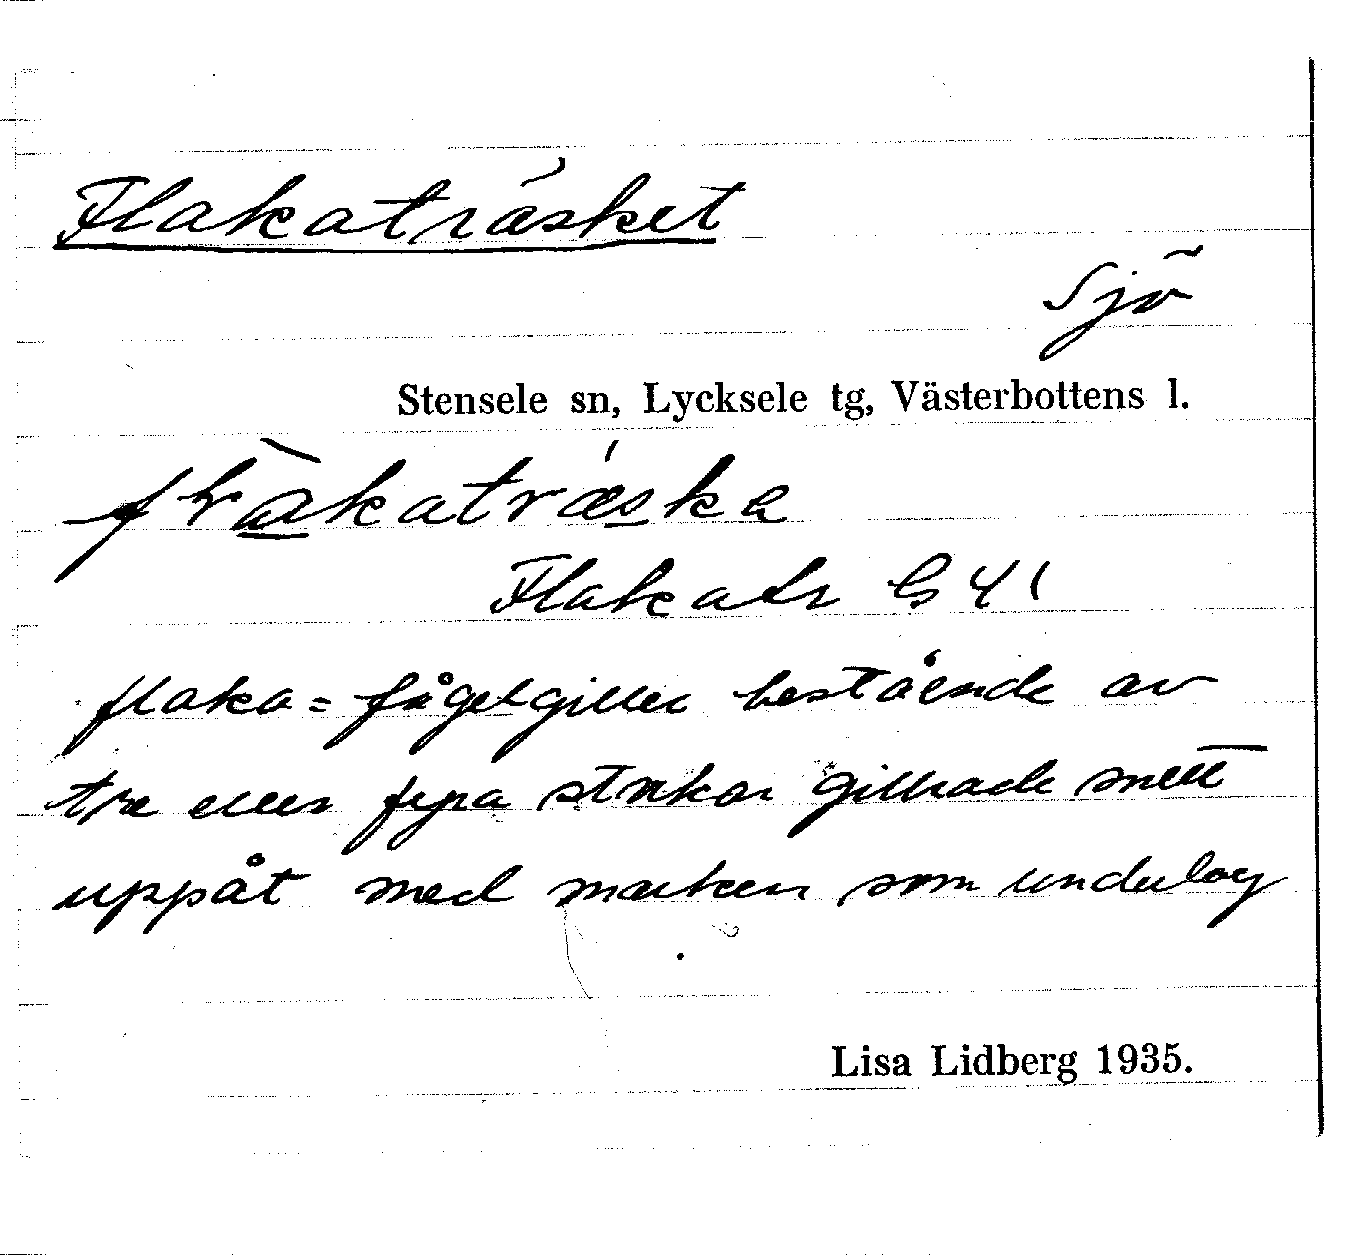 Flakaträsket
Sjö
Stensele sn, Lycksele tg, Västerbottens l.
Flakatr G41
flaka = fågelgiller bestående av
tre eller fyra stockar gillrade snett
uppåt med marken som underlag
Lisa Lidberg 1935.